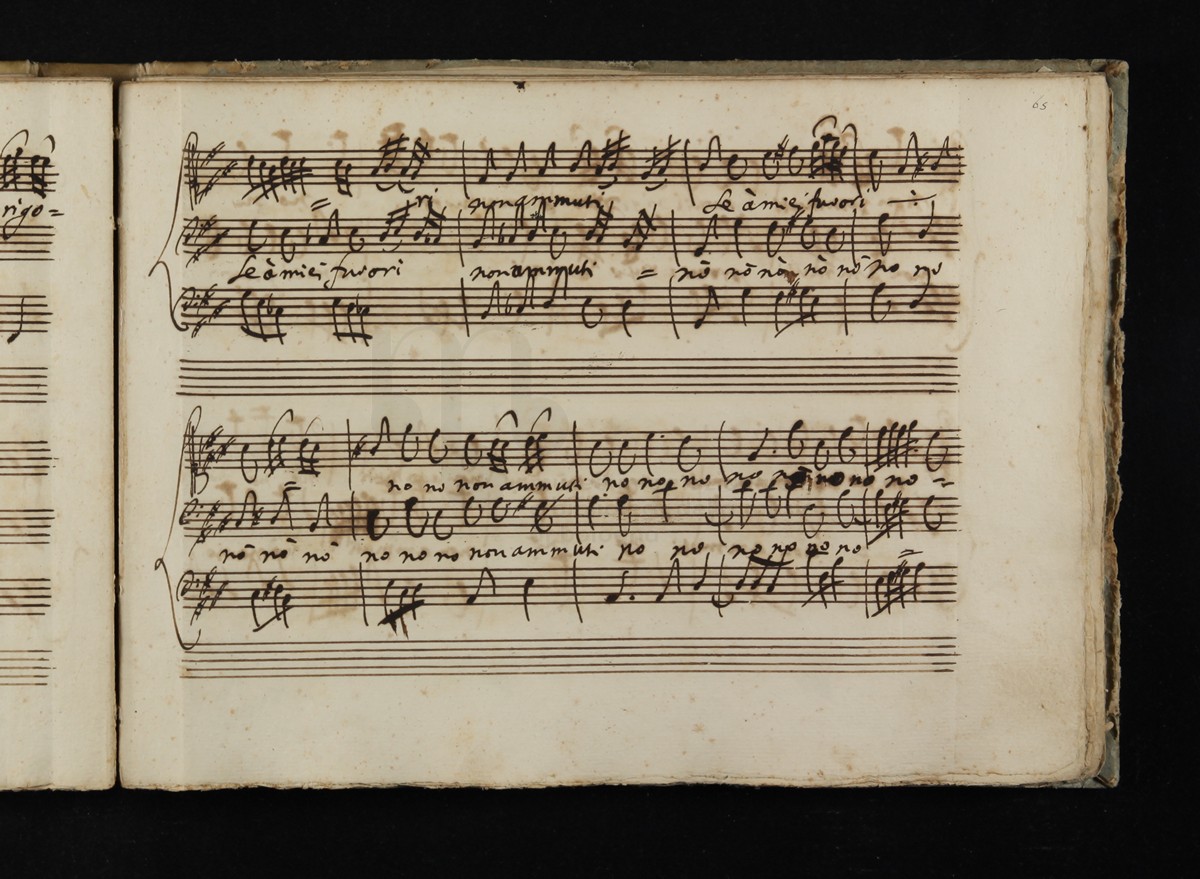 65
rigo=
= ri non ammuti Se à miei furori
Se à miei furori non ammuti = nò nò nò nò nò no no
= no no non ammuti no no no no no no no =
nò nò nò no no no non ammuti no no no no no no =